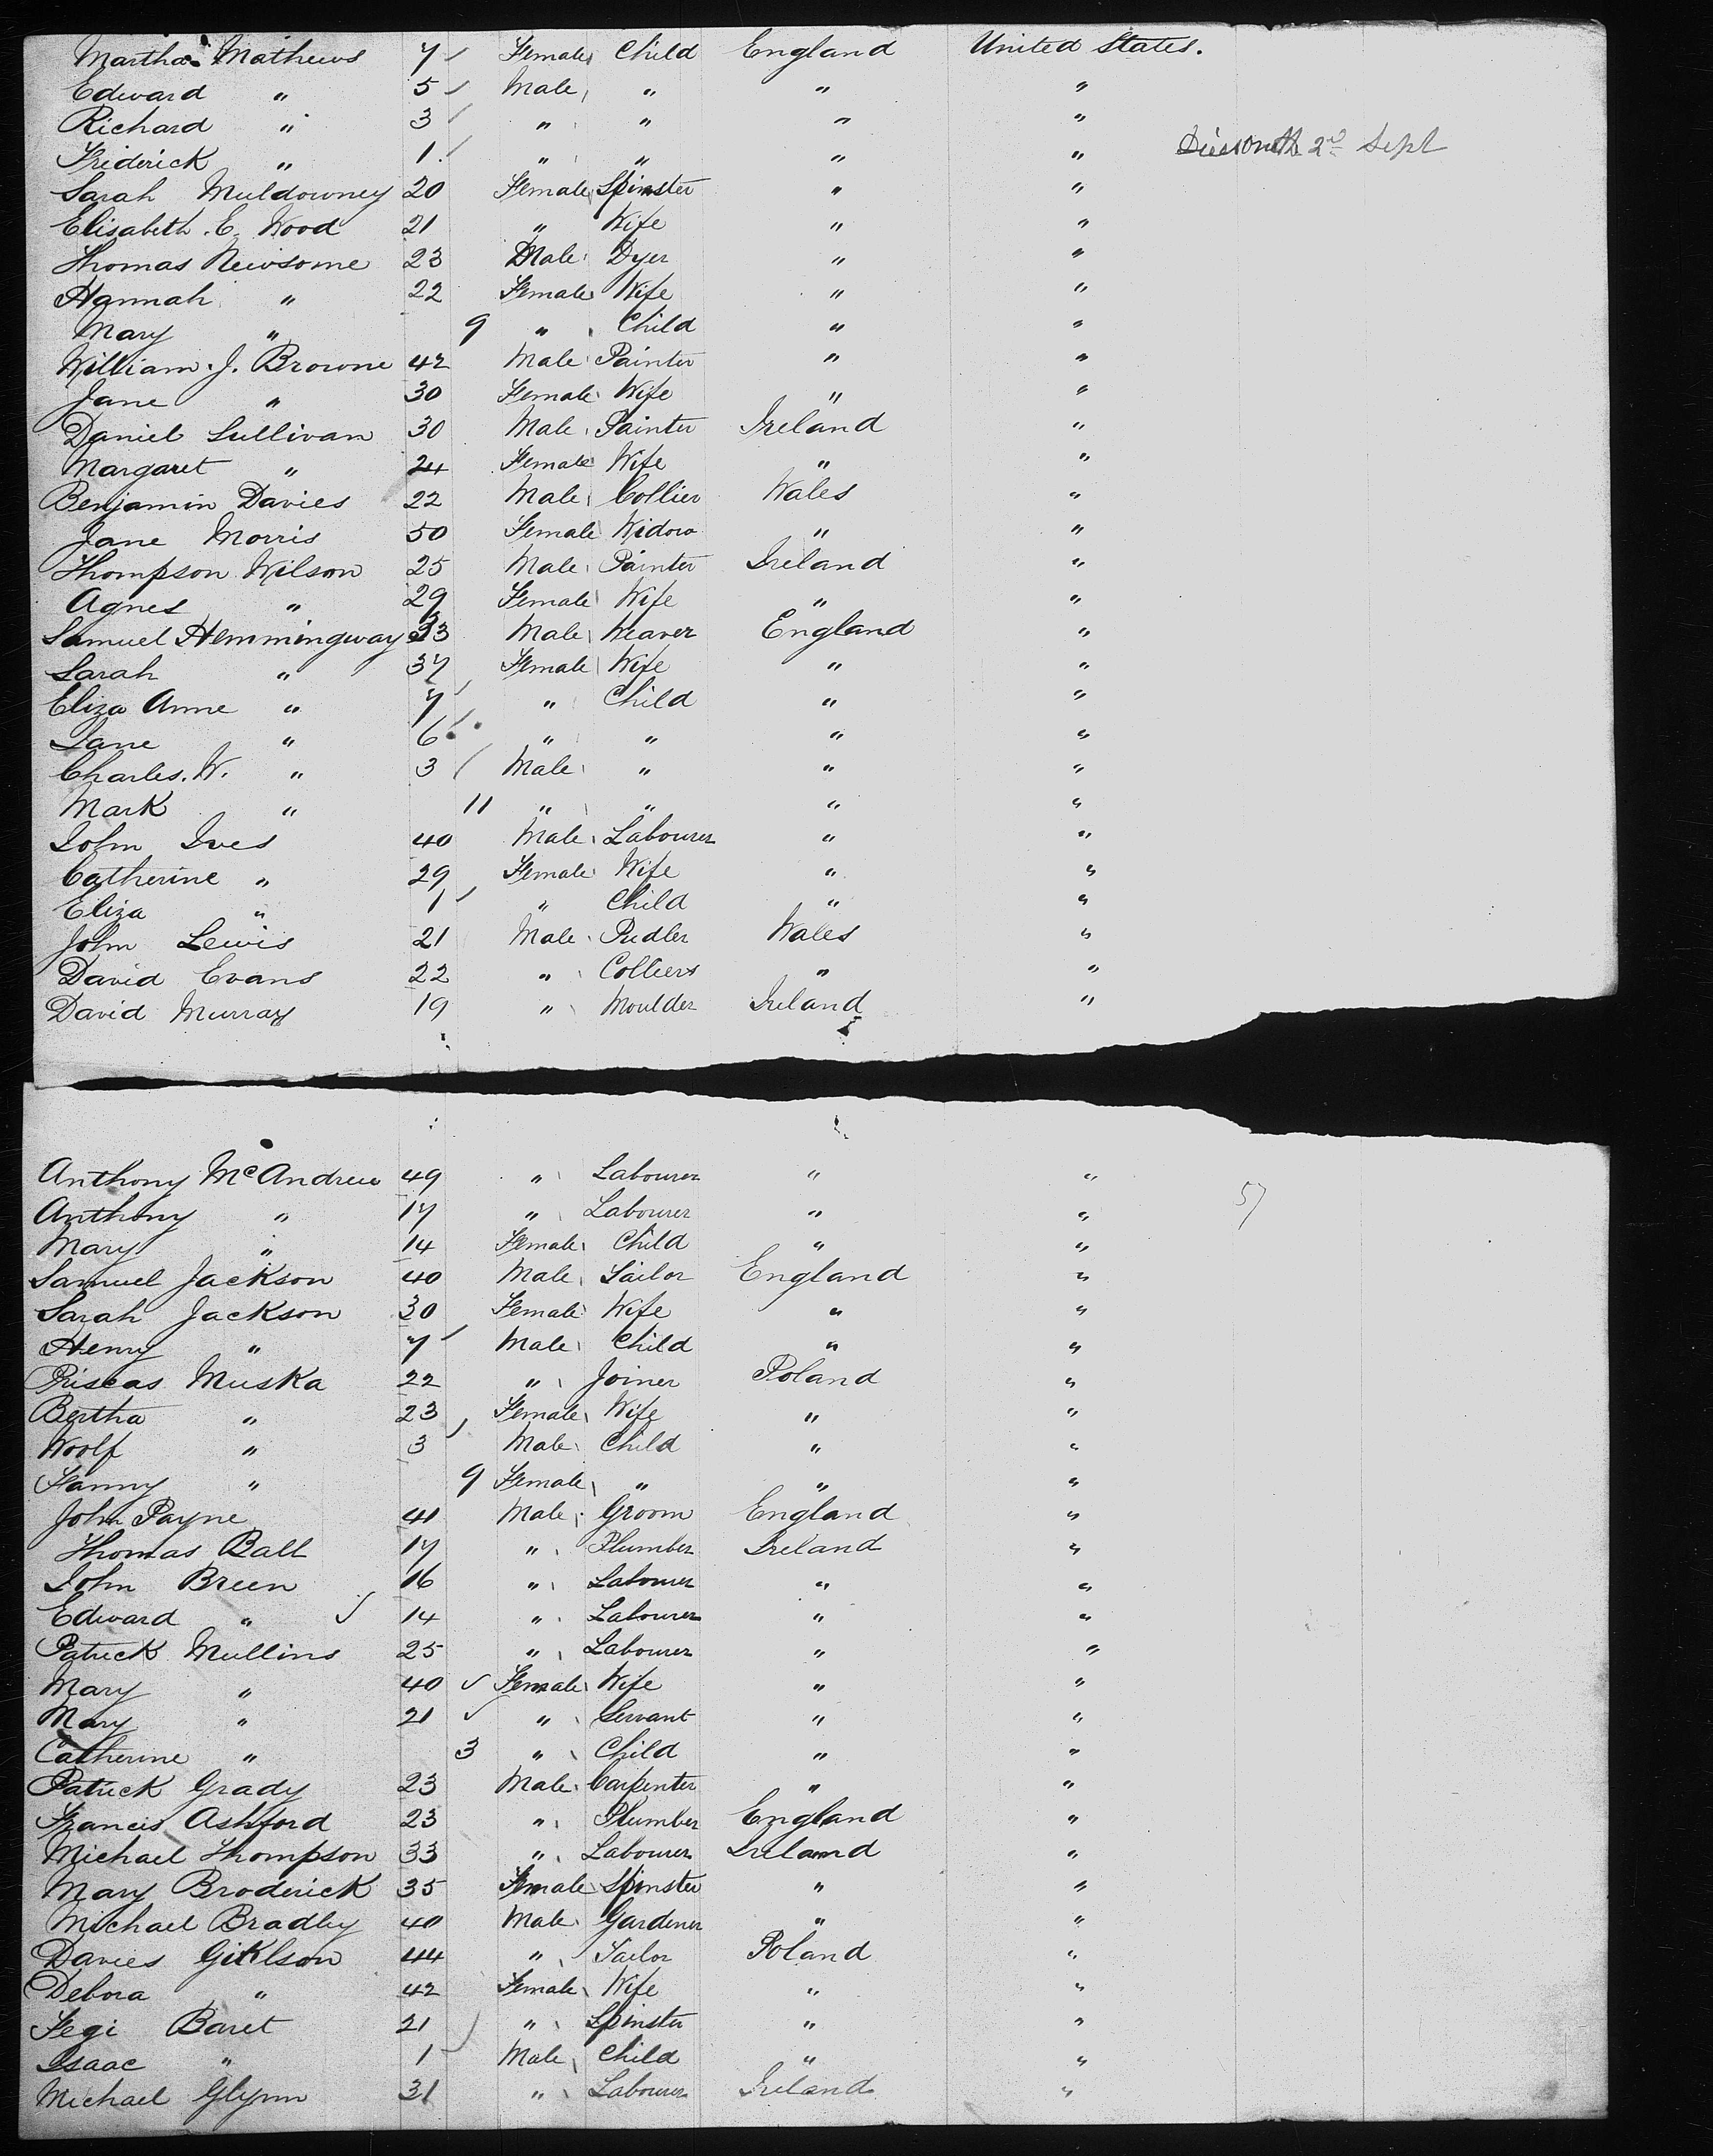 Martha Mathews 7 Female Child England United States.
Edward " 5 Male " " "
Richard " 3 " " " "
Friderick " 1 " " " " Died on the 2nd Sept
Sarah Muldowney 20 Female Spinster " "
Elisabeth. E. Wood 21 " Wife " "
Thomas Newsome 23 Male Dyer " "
Hannah " 22 Female Wife " "
Mary " 9 " Child " "
William. J. Browne 42 Male Painter " "
Jane " 30 Female Wife " "
Daniel Sullivan 30 Male Painter Ireland "
Margaret " 24 Female Wife " "
Benjamin Davies 22 Male Collier Wales "
Jane Morris 50 Female Widow " "
Thompson Wilson 25 Male Painter Ireland "
Agnes " 29 Female Wife " "
Samuel Hemmingway 33 Male Weaver England "
Sarah " 37 Female Wife " "
Eliza Anne " 7 " Child " "
Jane " 6 " " " "
Charles. W. " 3 Male " " "
Mark " 11 " " " "
John Ives 40 Male Labourer " "
Catherine " 29 Female Wife " "
Eliza " 1 " Child " "
John Lewis 21 Male Pudler Wales "
David Evans 22 " Colliers " "
David Murray 19 " Moulder Ireland "
Anthony McAndrew 49 " Labourer " "
Anthony " 17 " Labourer " " 57
Mary " 14 Female Child " "
Samuel Jackson 40 Male Tailor England "
Sarah Jackson 30 Female Wife " "
Henry " 7 Male Child " "
Priscas Muska 22 " Joiner Poland "
Bertha " 23 Female Wife " "
Woolf " 3 Male Child " "
Fanny " 9 Female " " "
John Payne 41 Male Groom England "
Thomas Ball 17 " Plumber Ireland "
John Breen 16 " Labourer " "
Edward " 14 " Labourer " "
Patrick Mullins 25 " Labourer " "
Mary " 40 Female Wife " "
Mary " 21 " Servant " "
Catherine " 3 " Child " "
Patrick Grady 23 Male Carpenter " "
Francis Ashford 23 " Plumber England "
Michael Thompson 33 " Labourer Ireland "
Mary Broderick 35 Female Spinster " "
Michael Bradley 40 Male Gardener " "
Davies Giklson 44 " Tailor Poland "
Debora " 42 Female Wife " "
Fegi Baret 21 " Spinster " "
Isaac " 1 Male Child " "
Michael Glynn 31 " Labourer Ireland "